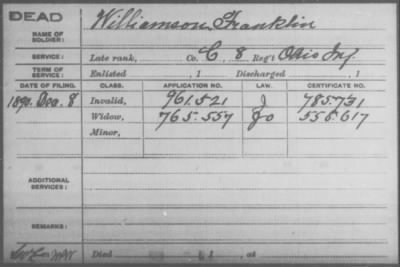 DEAD
NAME OF SOLDIER: Williamson Franklin
SERVICE: Late rank, Co. C, 8 Reg't Ohio Inf.
TERM OF SERVICE: Enlisted , 1 Discharged , 1
DATE OF FILING. CLASS. APPLICATION NO. LAW. CERTIFICATE NO.
1890. Dec. 8 Invalid, 961.521 J 785.731
Widow, 765.557 Jo 556.617
Minor,
ADDITIONAL SERVICES:
REMARKS:
Died , 1 , at